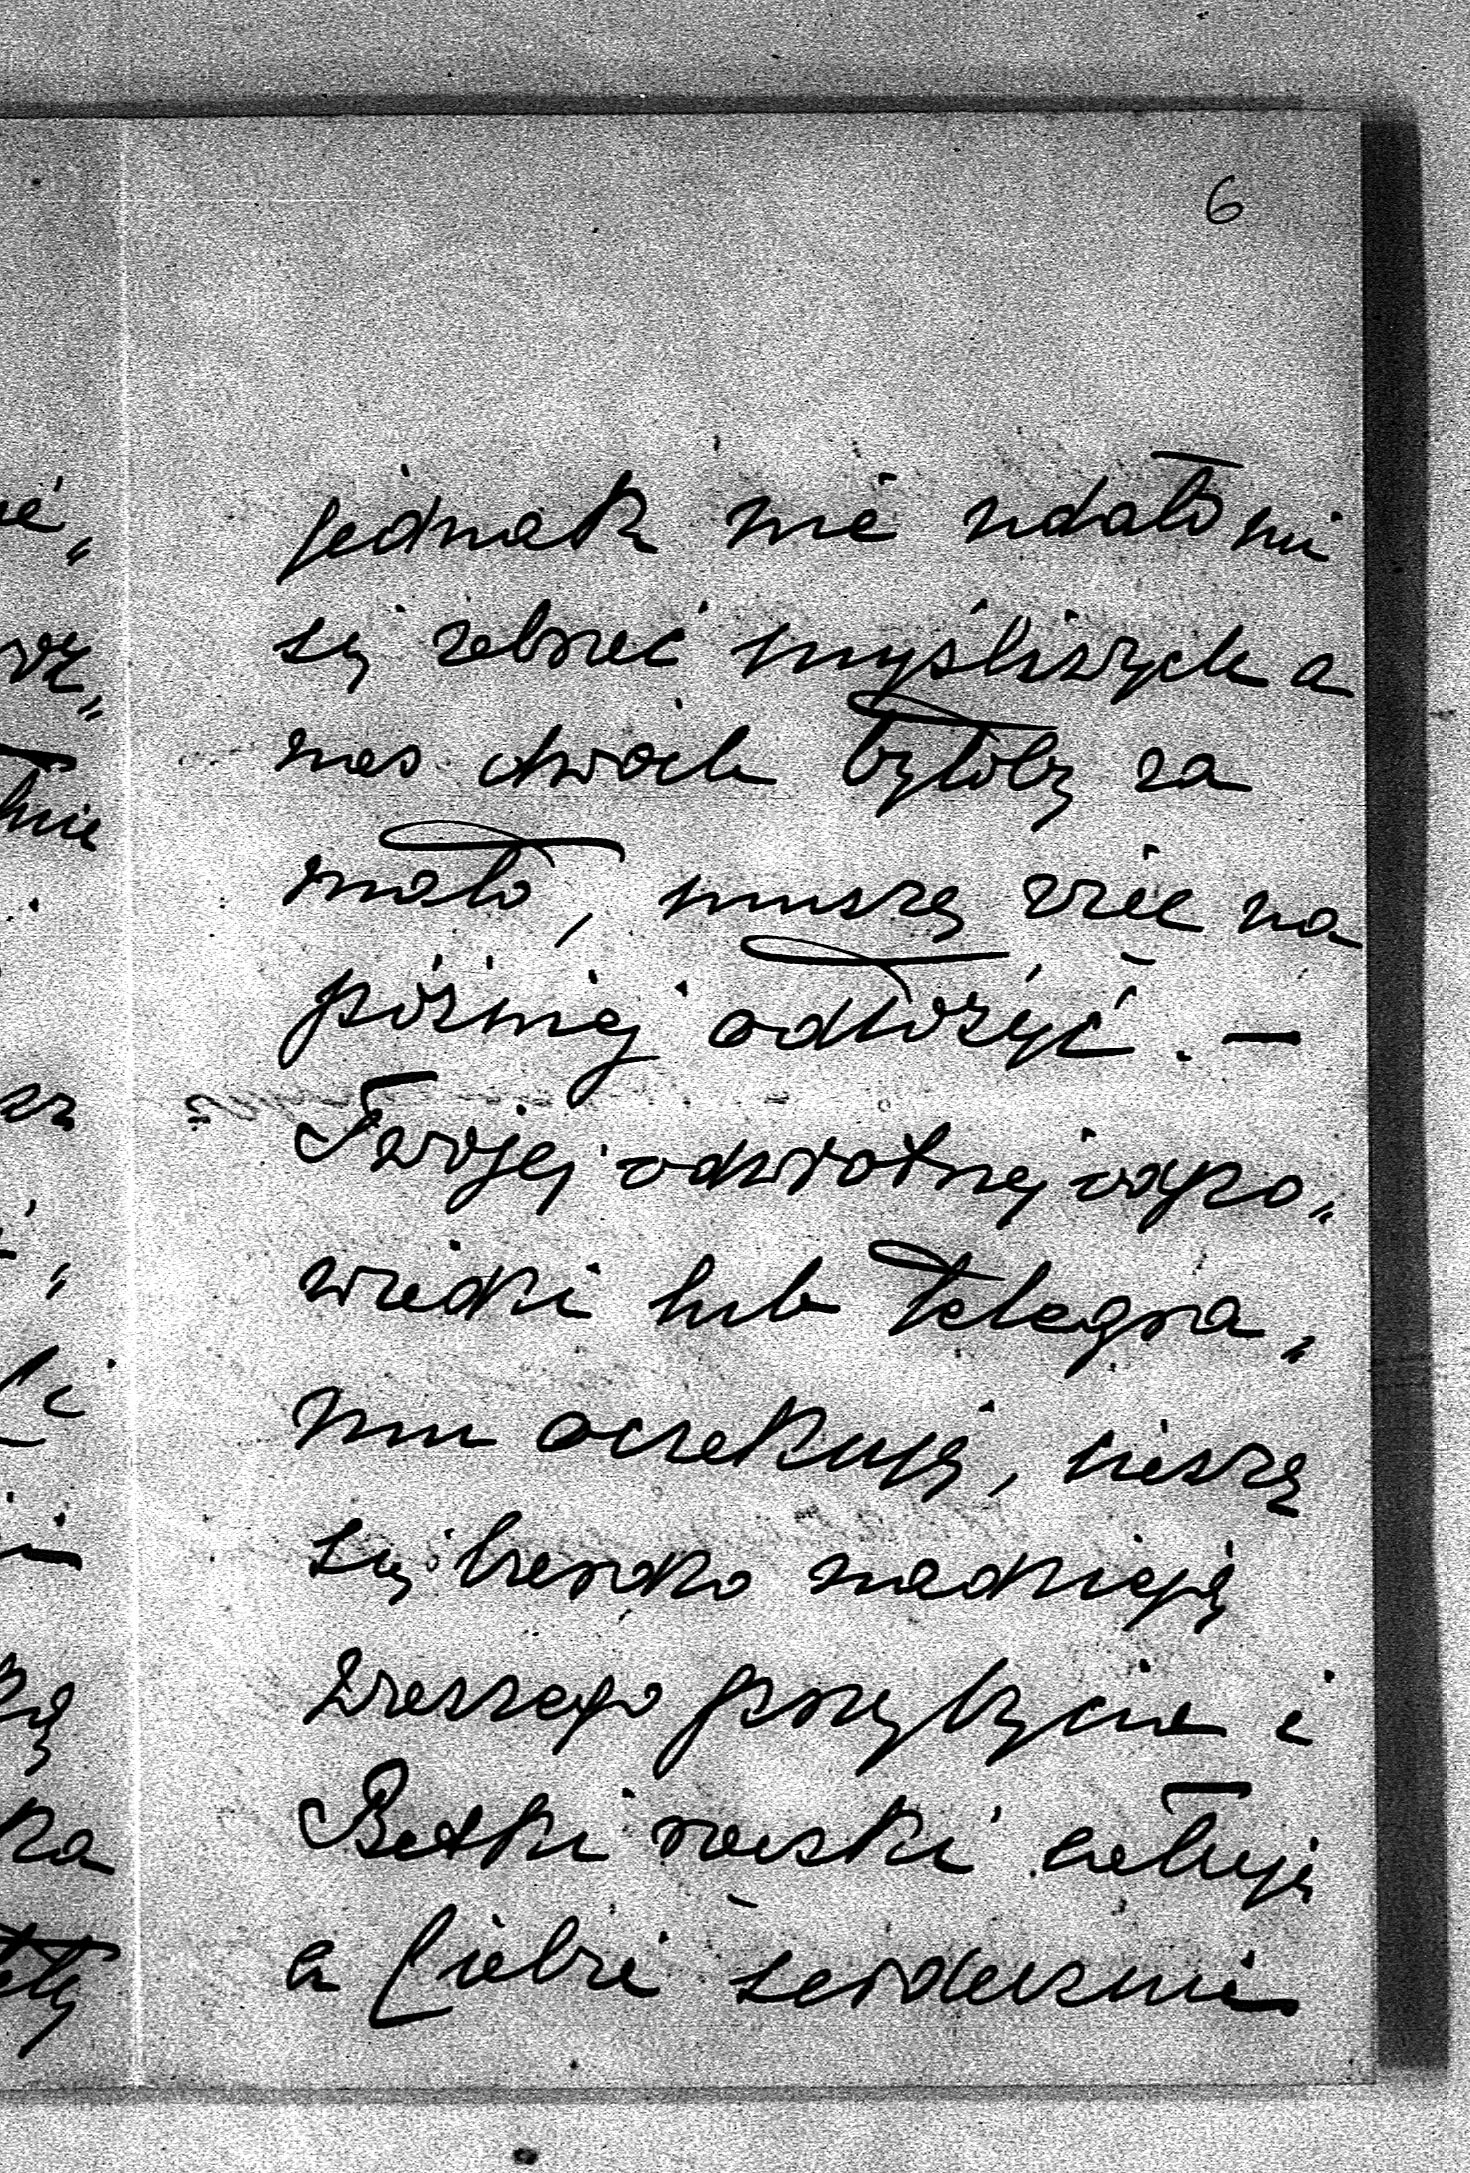 6
jednak nie udało mi
się zebrać myśliwych a
nas dwóch byłoby za
mało, muszę więc na
później odłożyć. —
Twojej odwrotnej odpo„
wiedzi lub telegra„
mu oczekuję, cieszę
się bardzo nadzieją
Waszego przybycia i
Betki rączki całuję
a Ciebie serdecznie